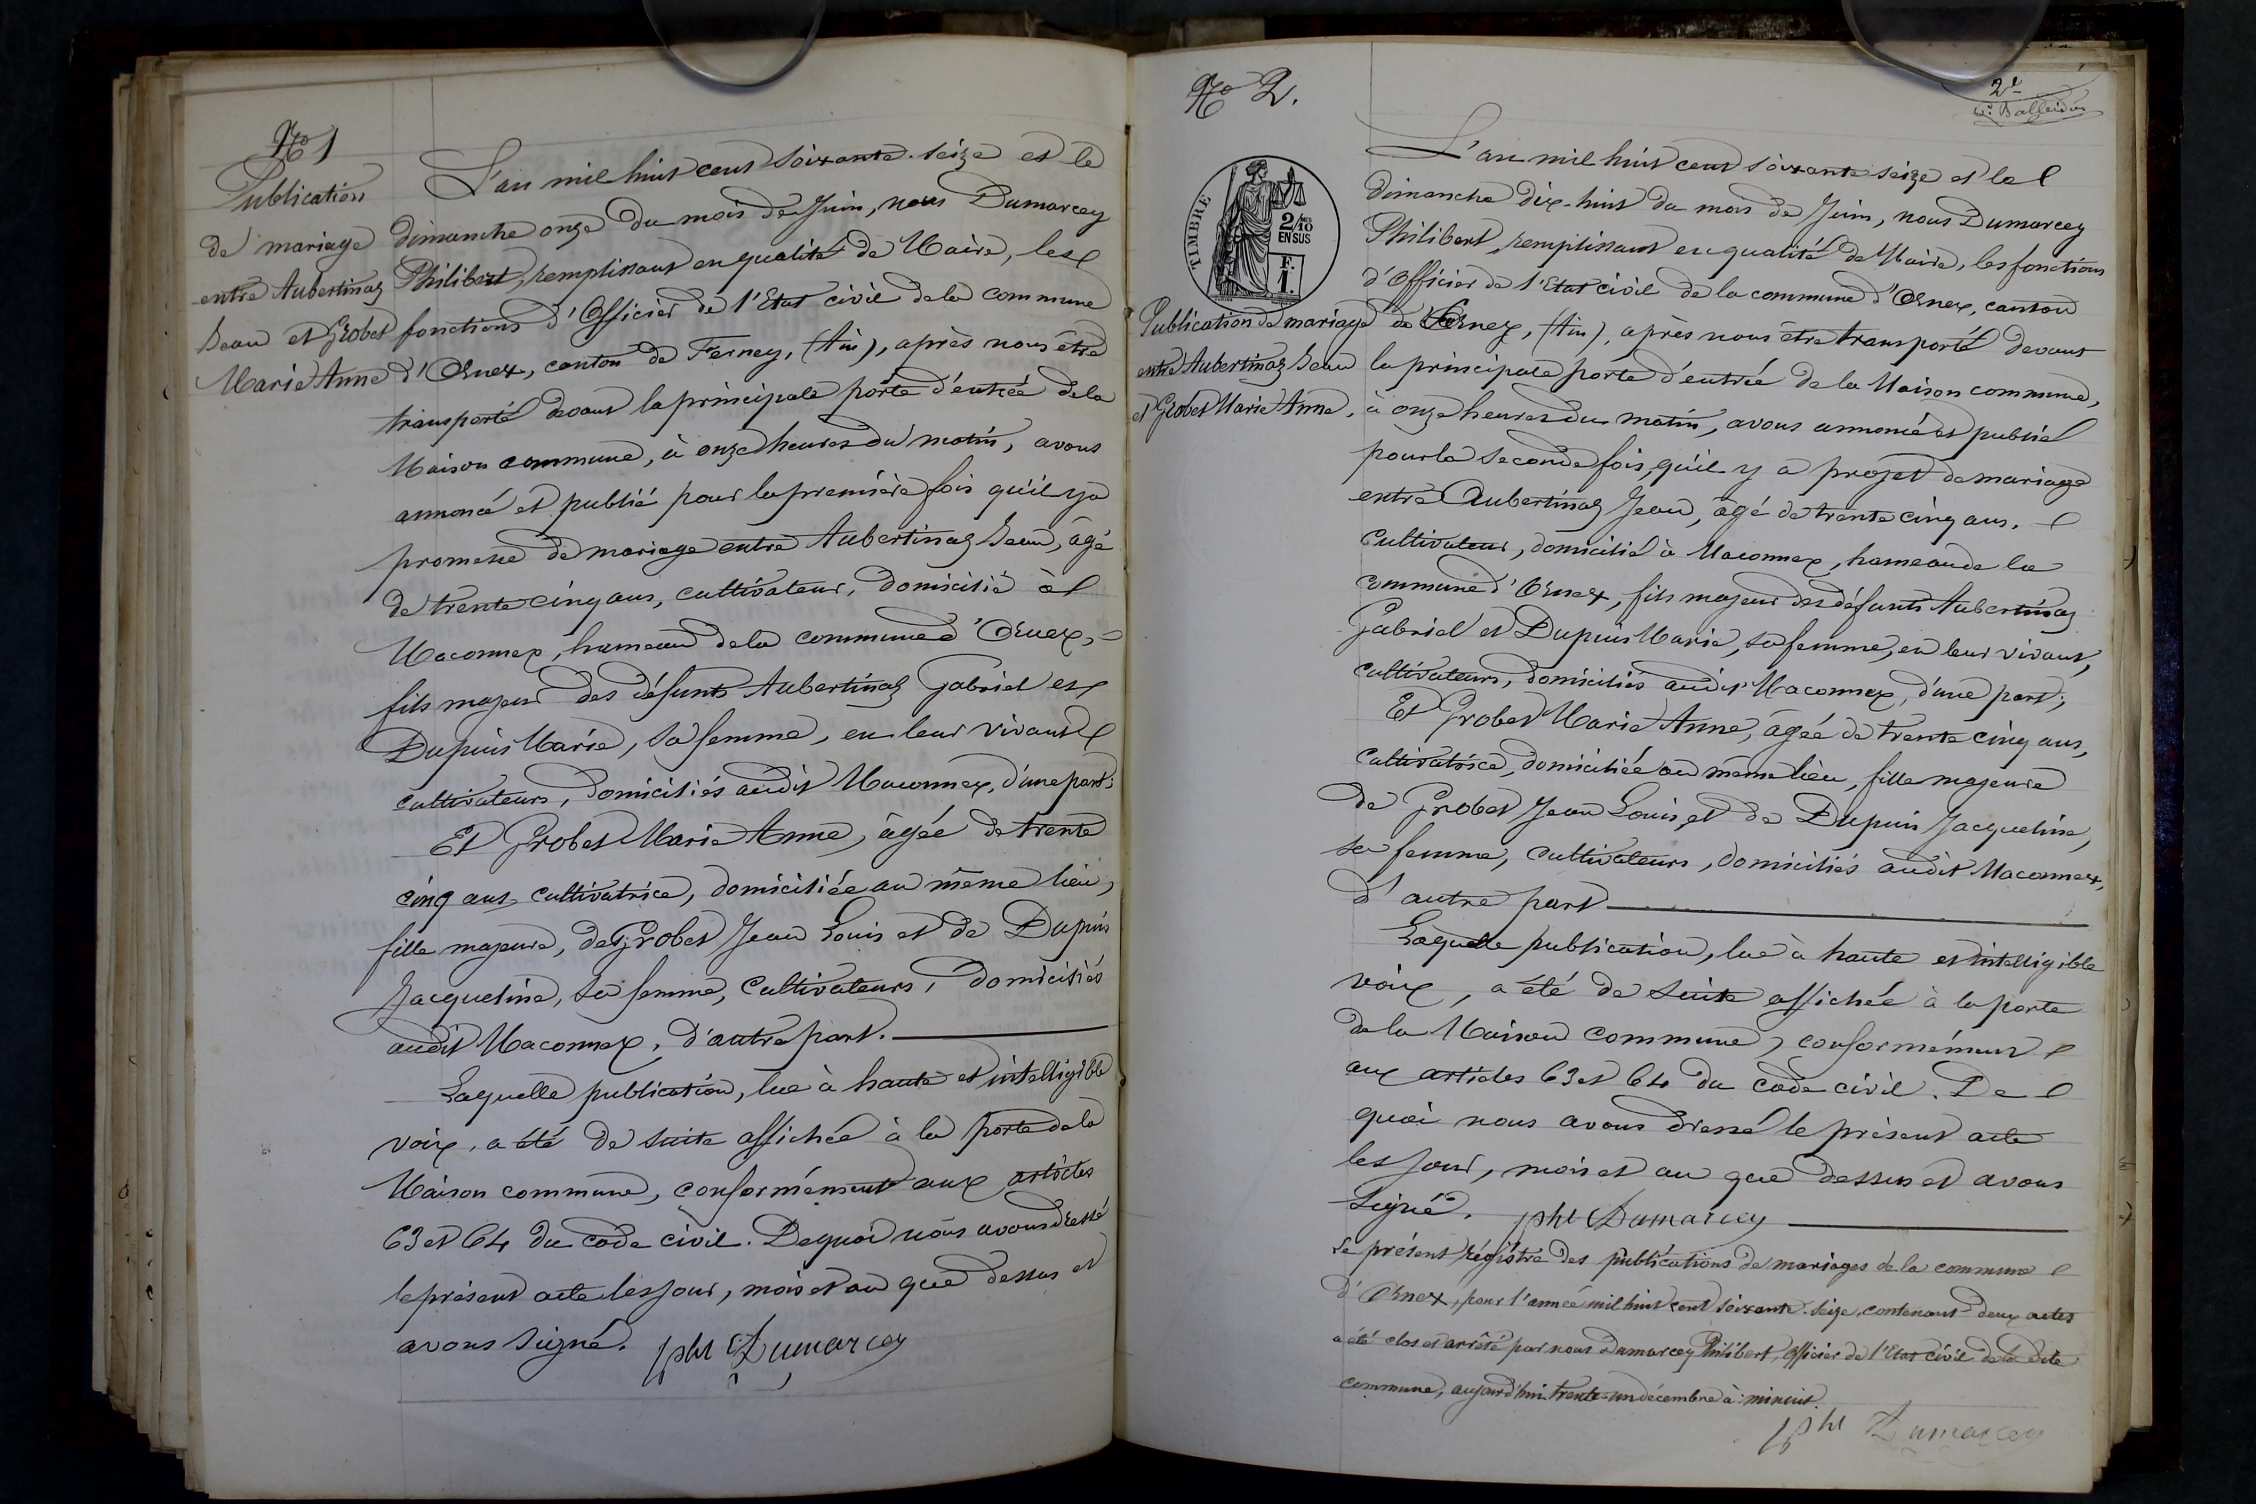 No 1
Publication
de mariage
entre Aubertinaz
Jean et Grobet
Marie Anne
L'an mil huit cent soixante-seize et le
dimanche onze du mois de Juin, nous Dumarcey
Philibert, remplissant en qualité de Maire, les
fonctions d'Officier de l'Etat civil de la commune
d'Ornex, canton de Ferney, (Ain), après nous être
transporté devant la principale porte d'entrée de la
Maison commune, à onze heures du matin, avons
annoncé et publié pour la première fois qu'il y a
promesse de mariage entre Aubertinaz Jean, âgé
de trente cinq ans, cultivateur, domicilié à
Maconnex, hameau de la commune d'Ornex,
fils majeur des défunts Aubertinaz Gabriel et
Dupuis Marie, sa femme, en leur vivant
cultivateurs, domiciliés audit Maconnex, d'une part;
Et Grobet Marie Anne, âgée de trente
cinq ans, cultivatrice, domiciliée au même lieu,
fille majeure, de Grobet Jean Louis et de Dupuis
Jacqueline, sa femme, cultivateurs, domiciliés
audit Maconnex, d'autre part.
Laquelle publication, lue à haute et intelligible
voix, a été de suite affichée à la porte de la
Maison commune, conformément aux articles
63 et 64 du code civil. De quoi nous avons dressé
le présent acte les jour, mois et an que dessus et
avons signé.
pht Dumarcey
No 2.
2e
TIMBRE
2/10 EN SUS
F. 1.
Publication de mariage
entre Aubertinaz Jean
et Grobet Marie Anne.
L'an mil huit cent soixante seize et le
dimanche dix-huit du mois de Juin, nous Dumarcey
Philibert, remplissant en qualité de Maire, les fonctions
d'Officier de l'Etat civil de la commune d'Ornex, canton
de Ferney, (Ain), après nous être transporté devant
la principale porte d'entrée de la Maison commune,
à onze heures du matin, avons annoncé et publié
pour la seconde fois, qu'il y a projet de mariage
entre Aubertinaz Jean, âgé de trente cinq ans,
cultivateur, domicilié à Maconnex, hameau de la
commune d'Ornex, fils majeur des défunts Aubertinaz
Gabriel et Dupuis Marie, sa femme, en leur vivant,
cultivateurs, domiciliés audit Maconnex, d'une part;
Et Grobet Marie Anne, âgée de trente cinq ans,
cultivatrice, domiciliée au même lieu, fille majeure
de Grobet Jean Louis, et de Dupuis Jacqueline,
sa femme, cultivateurs, domiciliés audit Maconnex,
d'autre part
Laquelle publication, lue à haute et intelligible
voix, a été de suite affichée à la porte
de la Maison commune, conformément
aux articles 63 et 64 du code civil. De
quoi nous avons dressé le présent acte
les jour, mois et an que dessus et avons
signé. pht Dumarcey
Le présent régistre des publications de mariages de la commune
d'Ornex, pour l'année mil huit cent soixante-seize, contenant deux actes
a été clos et arrêté par nous Dumarcey Philibert, Officier de l'Etat civil de la dite
commune, aujourd'hui trente-un décembre à minuit.
pht Dumarcey